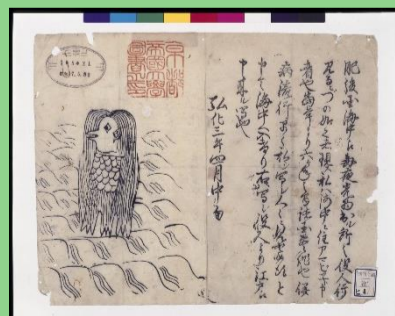 肥後国海中え毎夜光物出ル所之役人行
見るニづの如く者現ス私ハ海中ニ住アマビヱト申
者也當年より六ヶ年之間諸国豊作也併
病流行早々私シ写シ人々ニ見セ候得と
申て海中へ入けり右写シ役人より江戸え
申来ル写也
弘化三年四月中旬
京都帝國大學圖書之印